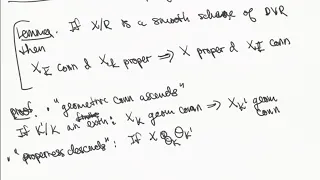 Lemma. If X/R is a smooth scheme of DVR
then
X_k̄ conn & X_k proper ⟹ X proper & X_K̄ conn
proof. "geometric conn ascends"
If K'/K an extn: X_K geom conn ⟹ X_K' geom
conn
"properness descends": If X ⊗_K K'